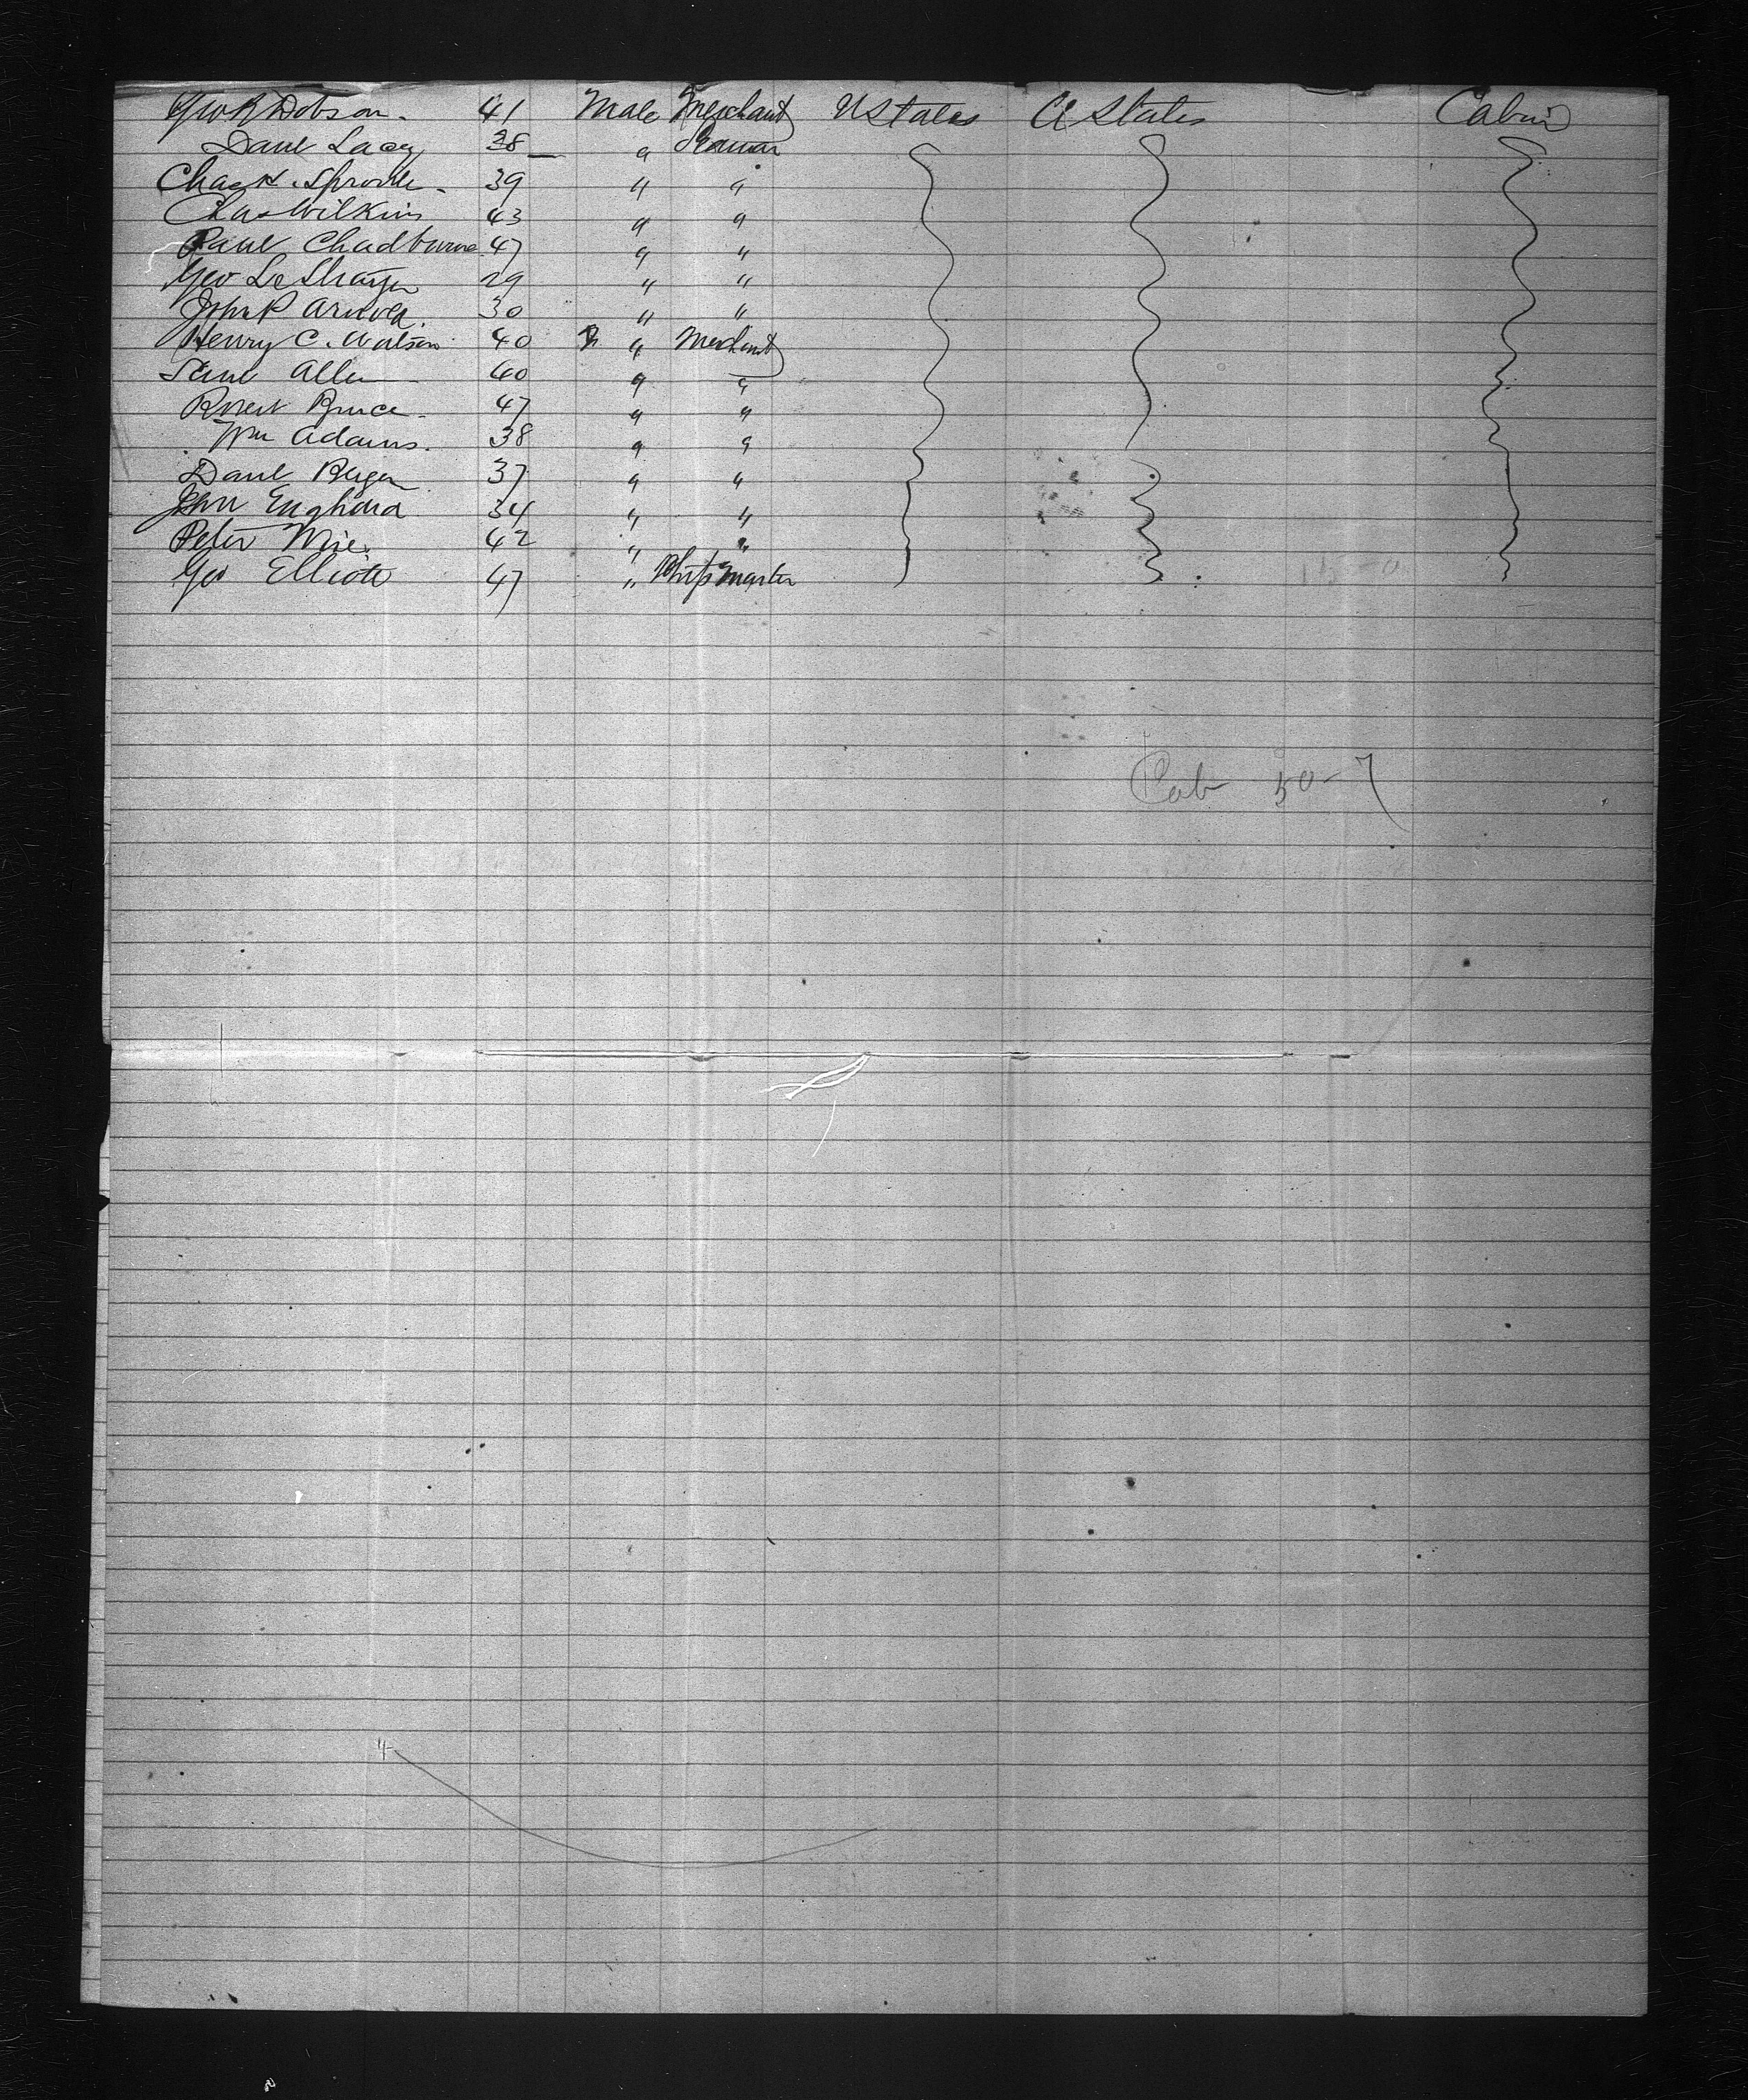 Geo R Dobson. 41 Male Merchant U States U States Cabin
Danl Lacey 38 " Seaman
Chas H. Sproule. 39 " "
Chas Wilkins 43 " "
Paul Chadburne 47 " "
Geo 29 " "
John P Arnold. 30 " "
Henry C. Watson 40 " Merchant
Saml Allen 60 " "
Robert Bruce. 47 " "
Wm Adams. 38 " "
Danl 37 " "
John 34 " "
Peter Wise. 42 " "
Geo Elliott 47 " Ship Master
15-0
Cab 50-7